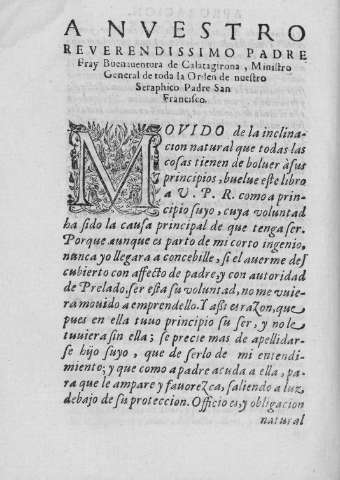 A NVESTRO
REVERENDISSIMO PADRE
Fray Buenauentura de Calatagirona, Ministro
General de toda la Orden de nuestro
Seraphico Padre San
Francisco.
MOVIDO de la inclina
cion natural que todas las
cosas tienen de boluer à sus
principios, buelue este libro
a V. P. R. como a prin-
cipio suyo, cuya voluntad
ha sido la causa principal de que tenga ser.
Porque aunque es parto de mi corto ingenio,
nunca yo llegara a concebille, si el auerme des
cubierto con affecto de padre, y con autoridad
de Prelado, ser esta su voluntad, no me vuie-
ra mouido a emprendello. Y assi es razon, que
pues en ella tuuo principio su ser, y no le
tuuiera sin ella; se precie mas de apellidar-
se hijo suyo, que de serlo de mi entendi-
miento; y que como a padre acuda a ella, pa-
ra que le ampare y fauorezca, saliendo a luz
debajo de su proteccion. Officio es, y obligacion
natural